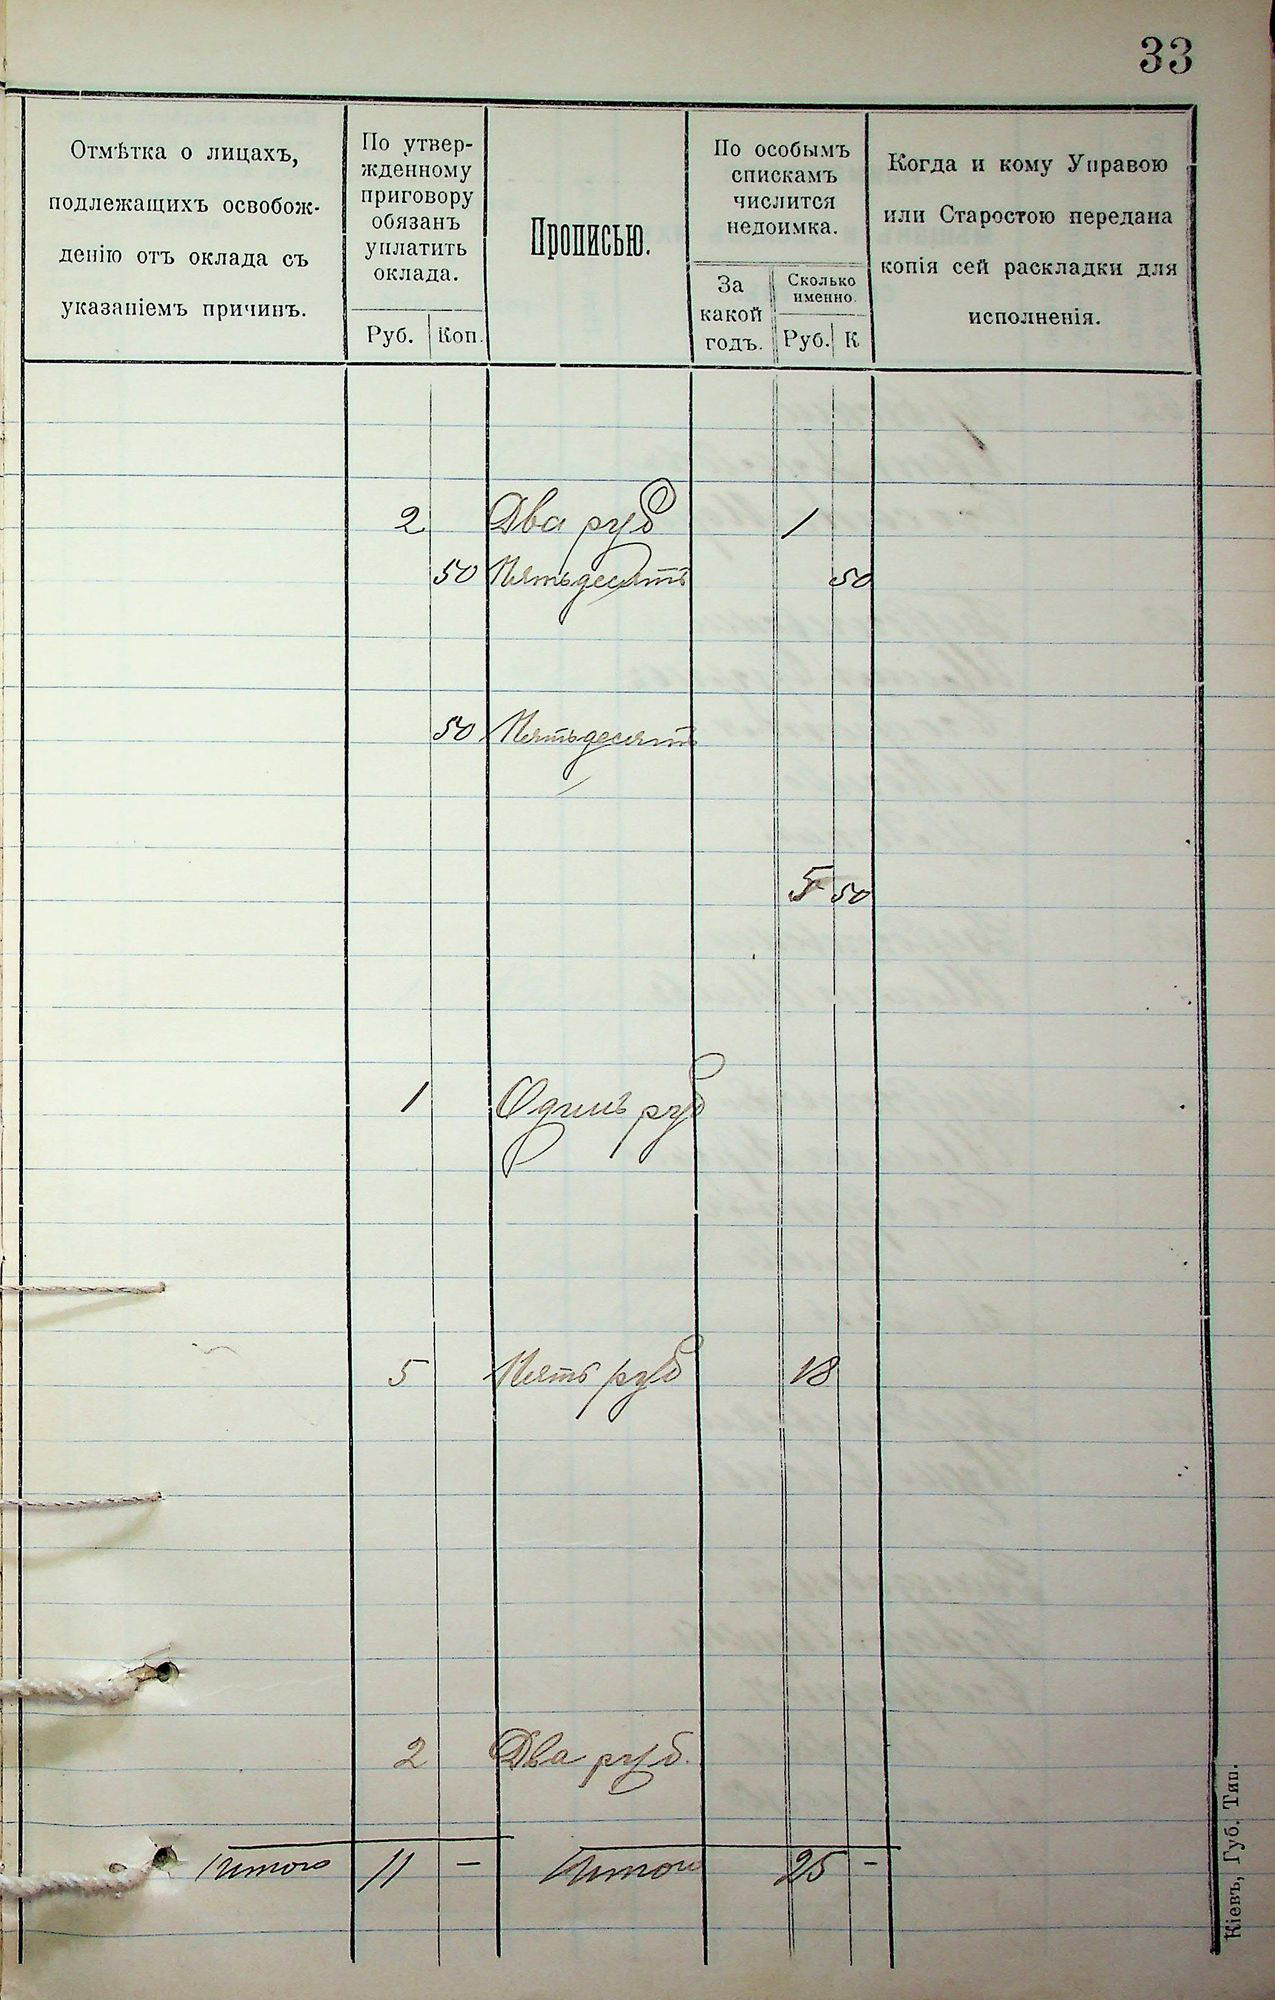 33
Отмѣтка о лицахъ,
подлежащихъ освобож-
денію отъ оклада съ
указаніемъ причинъ.
По утвер-
жденному
приговору
обязанъ
уплатить
оклада.
Руб. Коп.
Прописью.
По особымъ
спискамъ
числится
недоимка.
За
какой
годъ.
Сколько
именно.
Руб. К
Когда и кому Управою
или Старостою передана
копія сей раскладки для
исполненія.
2 Два руб 1
50 Пятьдесятъ 50
50 Пятьдесятъ
5 50
1 Одинъ руб
5 Пять руб 18
2 Два руб.
Итого 11 — Итого 25 -
Кіевъ, Губ. Тип.